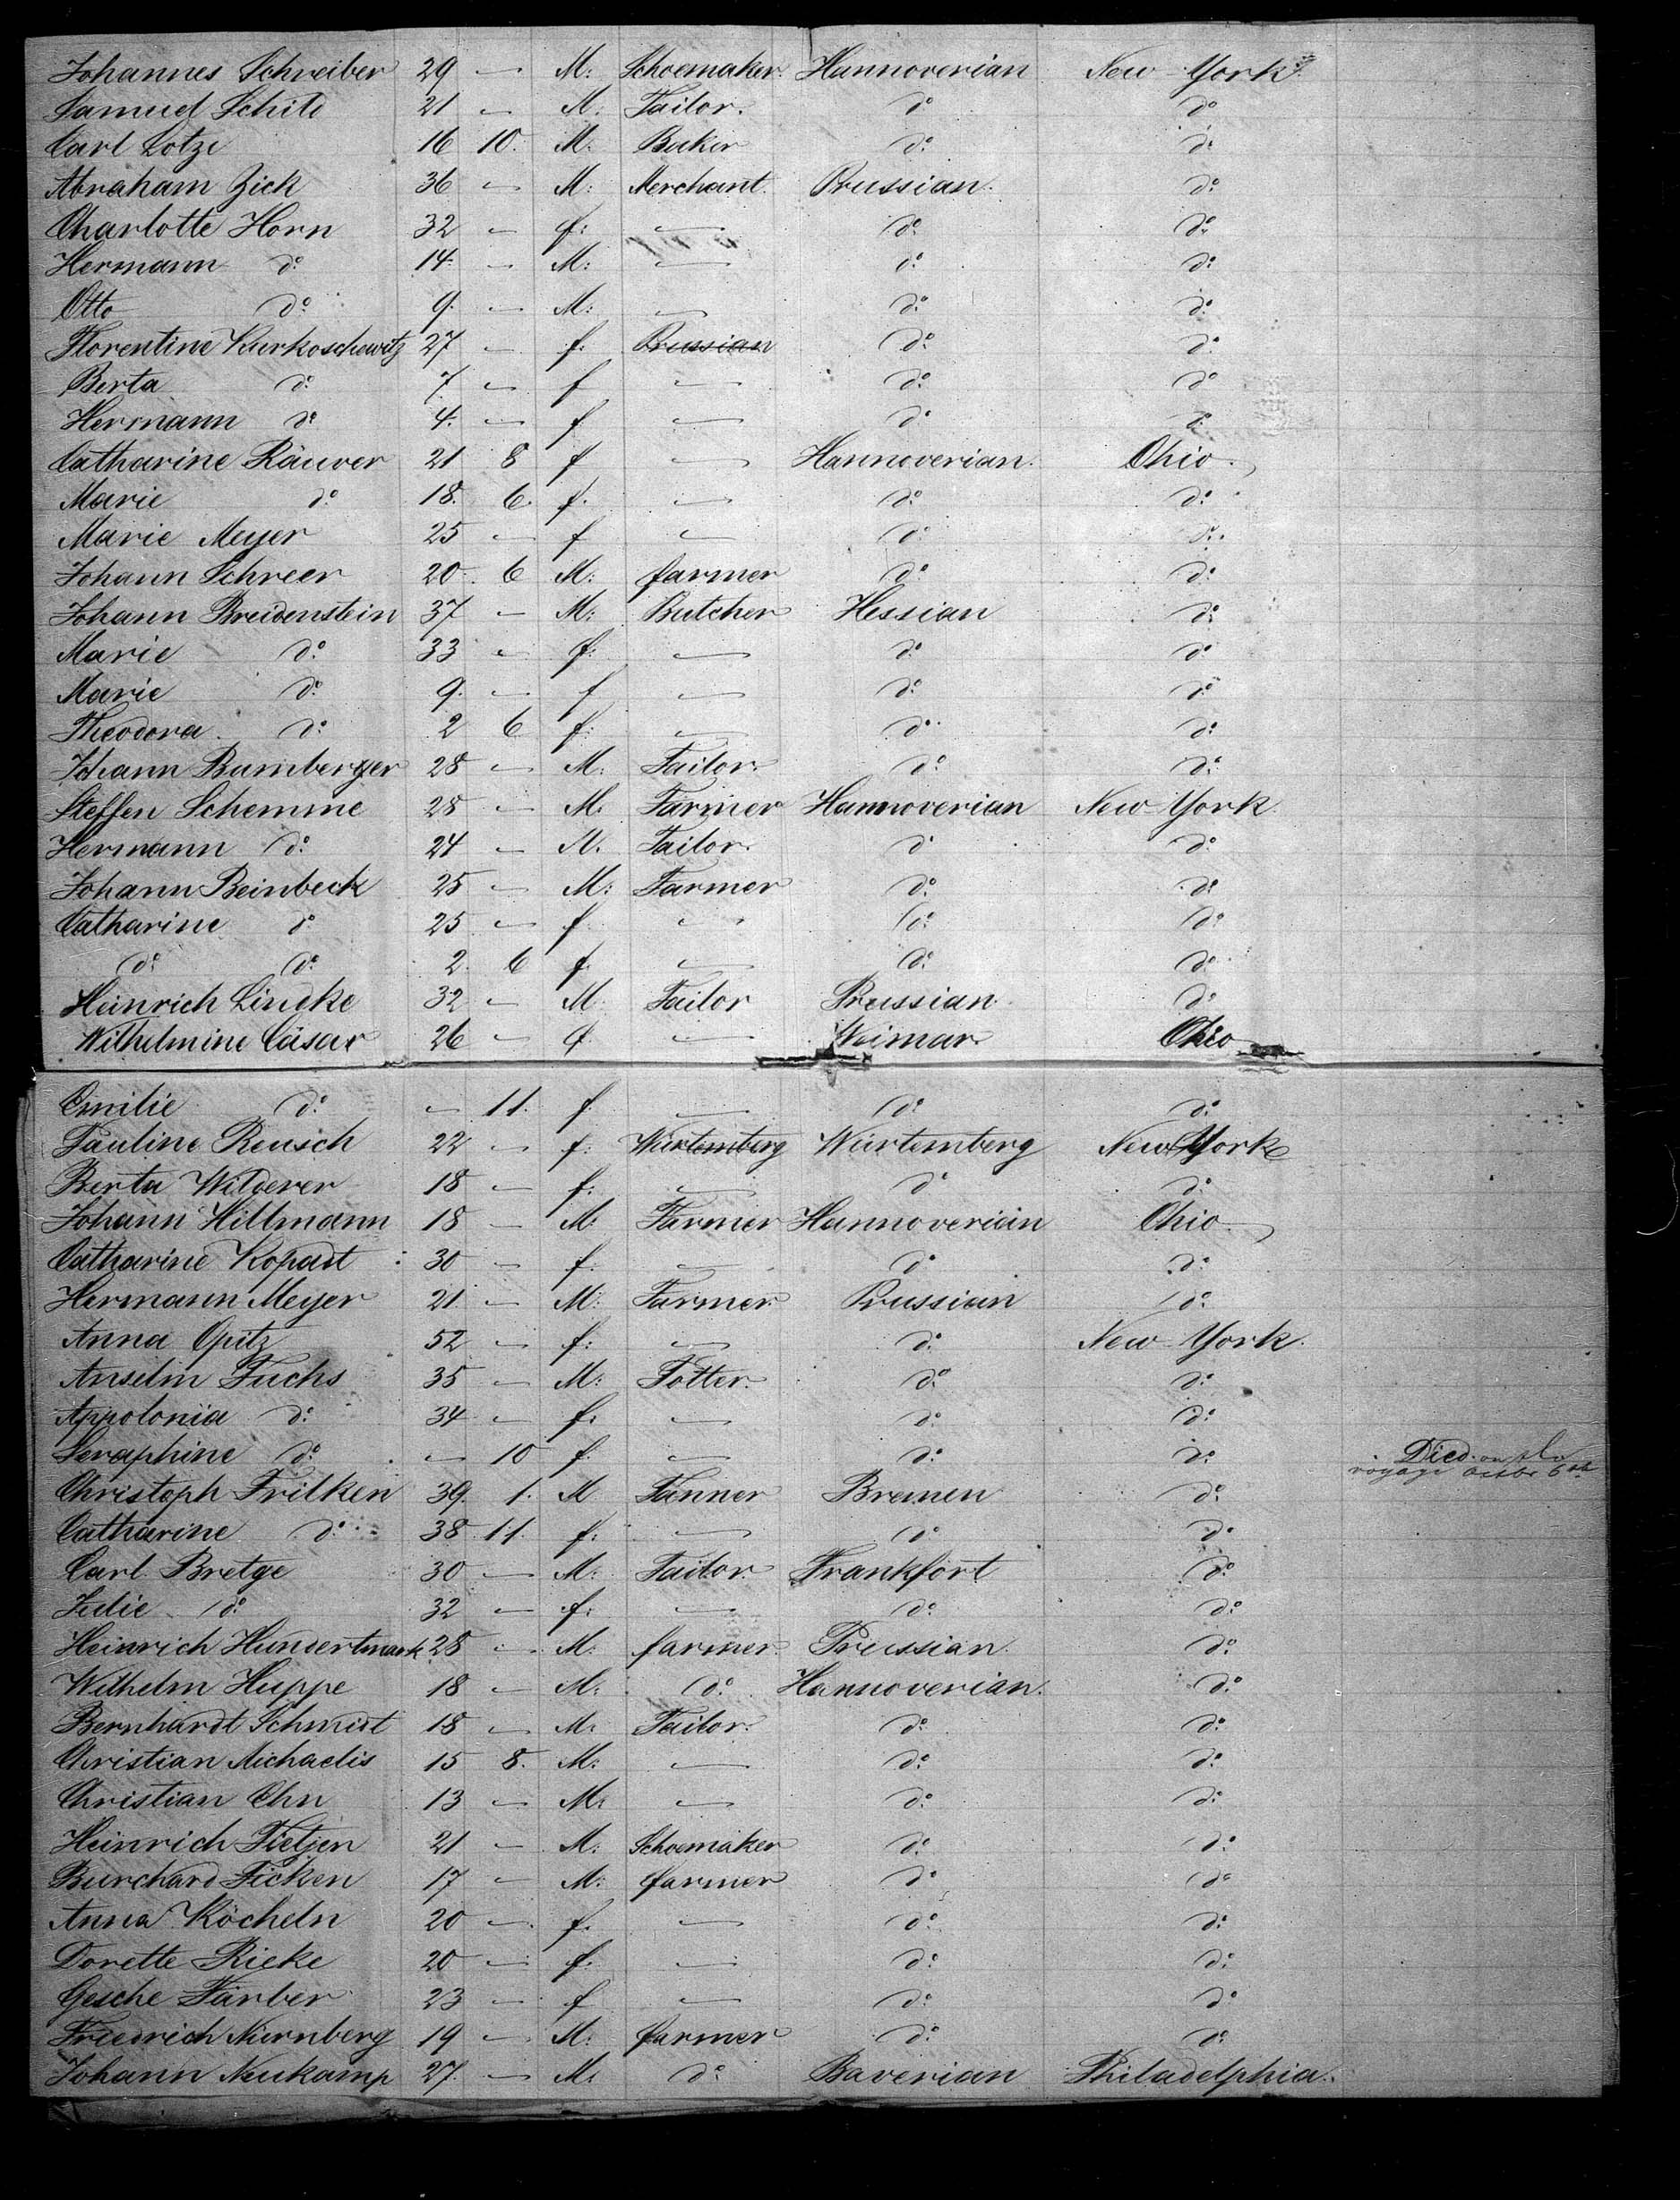 Johannes Schreiber 29 — M: Schoemaker Hannoverian New-York
Samuel Schild 21 — M: Tailor. do do
Carl Lotze 16 10. M: Beker do do
Abraham Zick 36 — M: Merchant Prussian. do
Charlotte Horn 32 — f: — do do
Hermann do 14 — M: — do do
Otto do 9. — M: — do do
Florentine Kurkoschewitz 27 — f. Prussian do do
Berta do 7 — f — do do
Hermann do 4. — f — do do
Catharine Räuver 21 8 f — Hannoverian. Ohio.
Marie do 18. 6. f. — do do
Marie Meyer 25 — f — do do
Johann Schreer 20 6 M: farmer do do
Johann Breidenstein 37 — M: Butcher Hessian do
Marie do 33 — f: — do do
Marie do 9. — f — do do
Theodora do 2 6 f: — do do
Johann Bamberger 28 — M: Tailor. do do
Steffen Schemme 28 — M. Farmer Hannoverian New-York
Hermann do 24 — M. Tailor. do do
Johann Beinbeck 25 — M: Farmer do do
Catharine do 25 — f — do do
do do 2. 6 f — do do
Heinrich Lindke 32 — M Tailor Prussian. do
Wilhelmine Cäsar 26 — f — Weimar Ohio
Emilie do — 11. f — do do
Pauline Reusch 22 — f. Würtemberg Würtemberg New York
Berta Wilderer 18 — f. — do do
Johann Hillmann 18 — M. Farmer Hannoverian Ohio.
Catharine 30 — f. — do do
Hermann Meyer 21 — M: Farmer Prussian do
Anna Opitz 52 — f: — do New-York.
Anselm Fuchs 35 — M: Potter. do do
Appolonia do 34 — f. — do do
Seraphine do — 10 f. — do do Died on
voyage 6th
Christoph Frilken 39. 1. M Tanner Bremen do
Catharine do 38 11. f. — do do
Carl Bretge 30 — M. Tailor. Frankfort do
Julie do 32 — f: — do do
Heinrich Hundertmark 28 — M. farmer Prussian. do
Wilhelm Huppe 18 — M. do Hannoverian. do
Bernhardt Schmidt 18 — M. Tailor. do do
Christian Michaelis 15 8. M: — do do
Christian Ehn 13 — M. — do do
Heinrich Tietjen 21 — M. Schoemaker do do
Burchard Ficken 17 — M: farmer do do
Anna Köcheln 20 — f. — do do
Dorette Rieke 20 — f. — do do
Gesche Färber 23 — f — do do
Friedrich Nürnberg 19 — M. farmer do do
Johann Neukamp 27. — M. do Baverian Philadelphia.